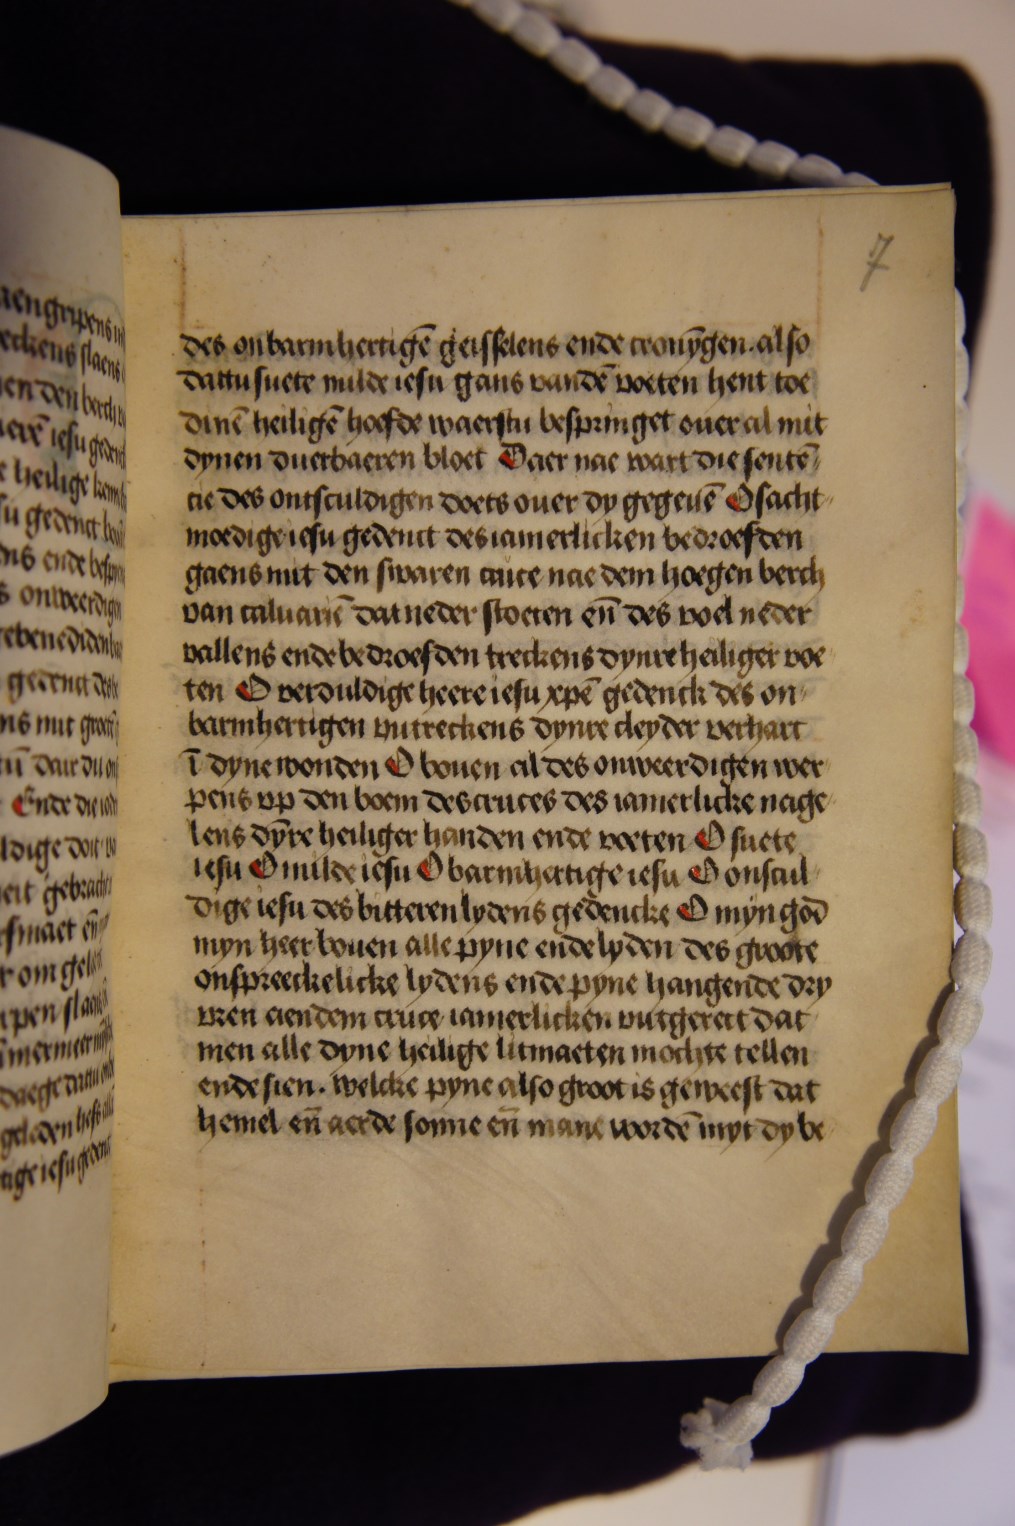 7
aengripens
eckens slaens
en den berch
iesu gedenct
heilige
su gedenct
ende
onweerdigen
gebenediden
gedenct des
mit
dat du
Ende die
ldige
gebrachte
smaet en̄
om
pen
nmermeer
daege
geleden heft
tige iesu gedenct
des onbarmhertigē geisselens ende cronỹgen. also
dattu suete milde iesu gans vandē voeten hent toe
dinē heiligē hoefde waerstu bespringet ouer al mit
dynen duerbaeren bloet Daer nae wart die sentē-
cie des ontsculdigen doets ouer dy gegeuē O sacht-
moedige iesu gedenct des iamerlicken bedroefden
gaens mit den swaren cruce nae dem hoegen berch
van caluariē dat neder stoeten en̄ des voel neder
vallens ende bedroefden treckens dynre heiliger voe
ten O verduldige heere iesu xpē gedenck des on-
barmhertigen vutreckens dynre cleyder verhart
ī dyne wonden O bouen al des onweerdigen wer
pens vp den boem des cruces des iamerlicke nage
lens dȳre heiliger handen ende voeten O suete
iesu O milde iesu O barmhertige iesu O onscul-
dige iesu des bitteren lydens gedencke O myn god
myn heer bouen alle pyne ende lyden des groote
onspreeckelicke lydens ende pyne hangende dry
vren aendem cruce iamerlicken vutgerect dat
men alle dyne heilige litmaeten mochte tellen
ende sien. welcke pyne also groot is geweest dat
hemel en̄ aerde sonne en̄ mane wordē myt dy be